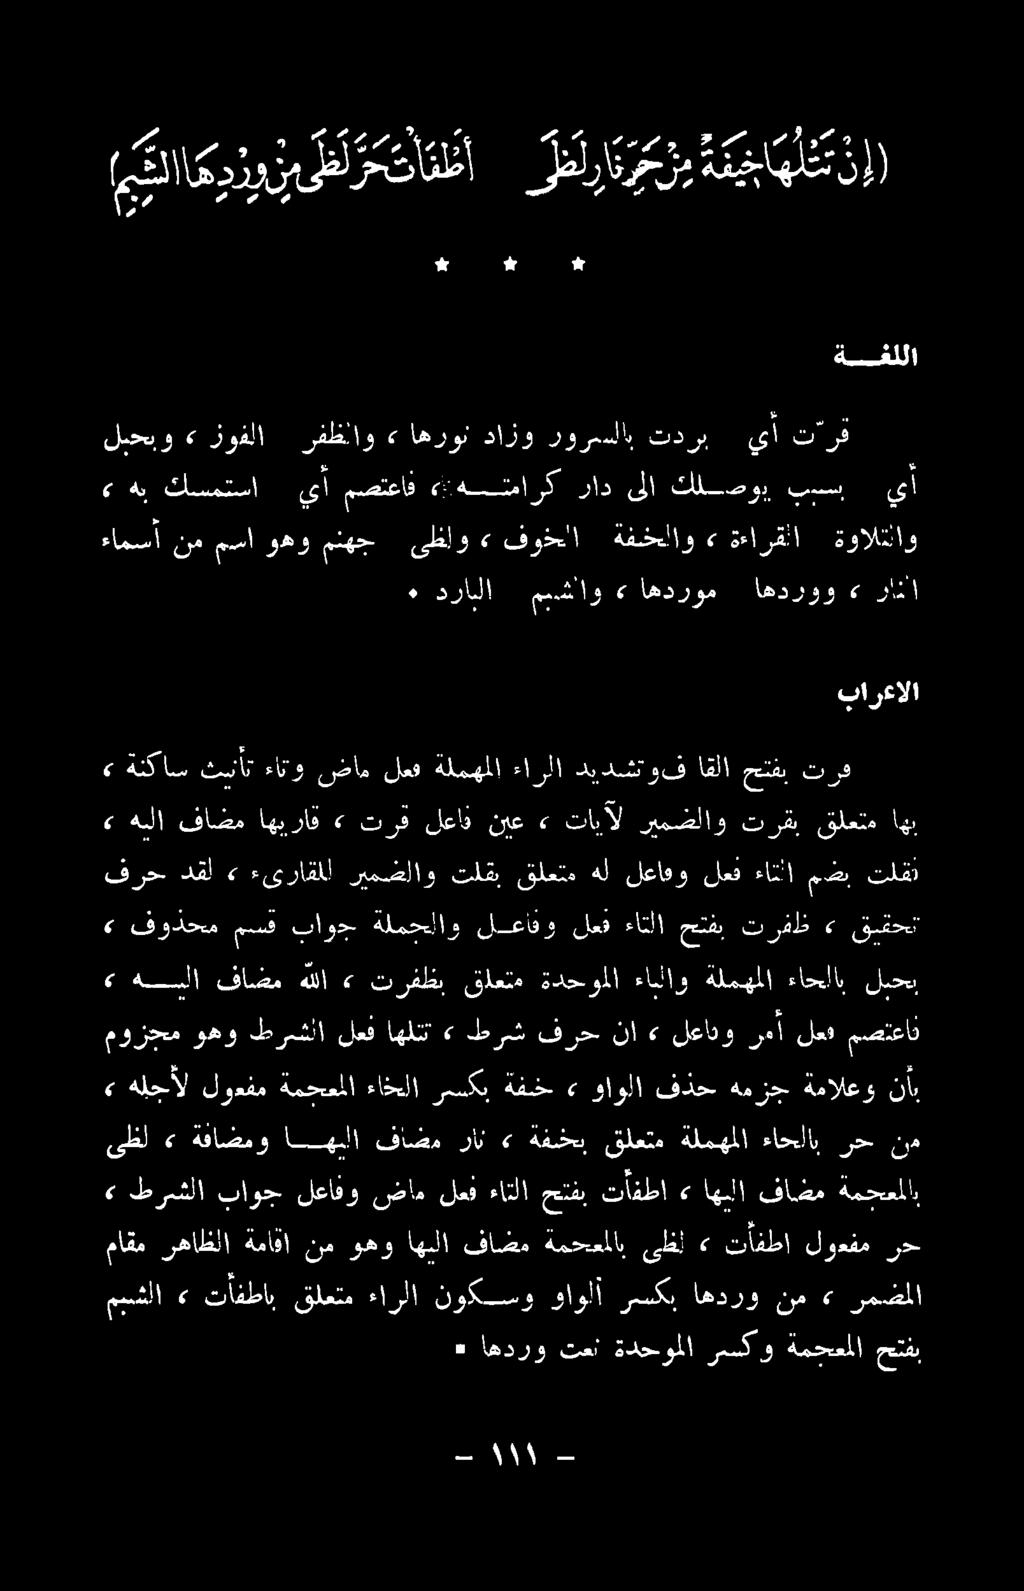 (إِنْ تَتْلُهَا خِيفَةً مِنْ حَرِّ نَارِ لَظَى أَطْفَأْتَ حَرَّ لَظَى مِنْ وِرْدِهَا الشَّبِمِ)
* * *
اللغــة
قرّت أي بردت بالسرور وزاد نورها ، والظفر الفوز ، وبحبل
أي بسبب يوصــلك الى دار كرامتــه ، فاعتصم أي استمسك به ،
والتلاوة القراءة ، والخيفة الخوف ، ولظى جهنم وهو اسم من أسماء
النار ، ووردها موردها ، والشبم البارد .
الاعراب
قرت بفتح القاف وتشديد الراء المهملة فعل ماض وتاء تأنيث ساكنة ،
بها متعلق بقرت والضمير لآيات ، عين فاعل قرت ، قاريها مضاف اليه ،
فقلت بضم التاء فعل وفاعل له متعلق بقلت والضمير للقارىء ، لقد حرف
تحقيق ، ظفرت بفتح التاء فعل وفاعــل والجملة جواب قسم محذوف ،
بحبل بالحاء المهملة والباء الموحدة متعلق بظفرت ، الله مضاف اليــه ،
فاعتصم فعل أمر وفاعل ، ان حرف شرط ، تتلها فعل الشرط وهو مجزوم
بأن وعلامة جزمه حذف الواو ، خيفة بكسر الخاء المعجمة مفعول لأجله ،
من حر بالحاء المهملة متعلق بخيفة ، نار مضاف اليهــا ومضافة ، لظى
بالمعجمة مضاف اليها ، اطفأت بفتح التاء فعل ماض وفاعل جواب الشرط ،
حر مفعول اطفأت ، لظى بالمعجمة مضاف اليها وهو من اقامة الظاهر مقام
المضمر ، من وردها بكسر الواو وســكون الراء متعلق باطفأت ، الشبم
بفتح المعجمة وكسر الموحدة نعت وردها .
- ١١١ -